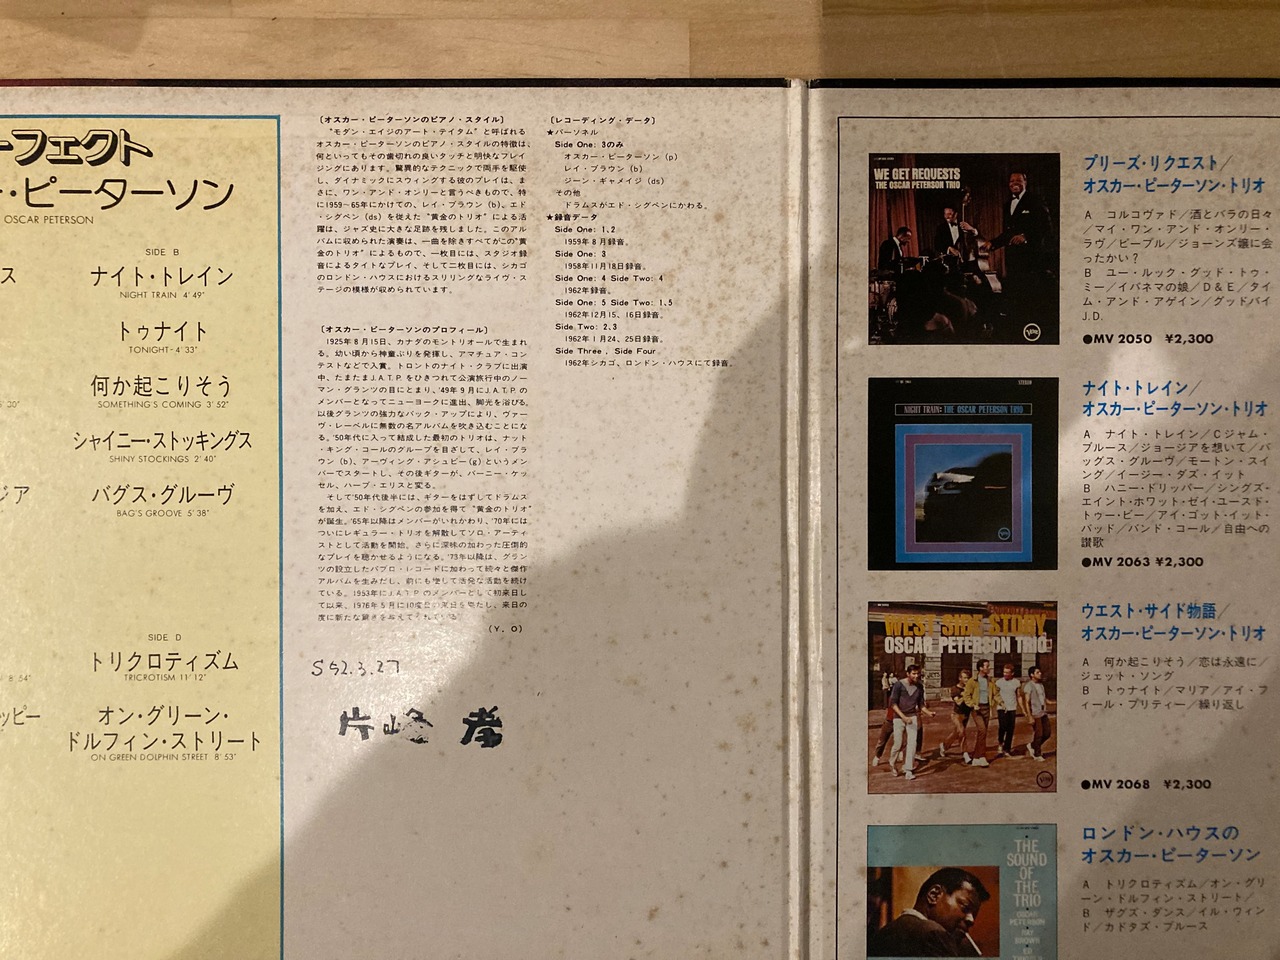 ーフェクト
・ピーターソン
OSCAR PETERSON
SIDE B
ス
ナイト・トレイン
NIGHT TRAIN 4'49"
トゥナイト
TONIGHT-4'33"
何か起こりそう
5'30"
SOMETHING'S COMING 3'52"
シャイニー・ストッキングス
SHINY STOCKINGS 2'40"
ジア
バグス・グルーヴ
BAG'S GROOVE 5'38"
SIDE D
トリクロティズム
8'54"
TRICROTISM 11'12"
ッピー
オン・グリーン・
ドルフィン・ストリート
ON GREEN DOLPHIN STREET 8'53"
〔オスカー・ピーターソンのピアノ・スタイル〕
"モダン・エイジのアート・テイタム"と呼ばれる
オスカー・ピーターソンのピアノ・スタイルの特徴は、
何といってもその歯切れの良いタッチと明快なフレイ
ジングにあります。驚異的なテクニックで両手を駆使
し、ダイナミックにスウィングする彼のプレイは、ま
さに、ワン・アンド・オンリーと言うべきもので、特
に1959〜65年にかけての、レイ・ブラウン（b）。エド
・シグペン（ds）を従えた"黄金のトリオ"による活
躍は、ジャズ史に大きな足跡を残しました。このアル
バムに収められた演奏は、一曲を除きすべてがこの"黄
金のトリオ"によるもので、一枚目には、スタジオ録
音によるタイトなプレイ、そして二枚目には、シカゴ
のロンドン・ハウスにおけるスリリングなライヴ・ス
テージの模様が収められています。
〔オスカー・ピーターソンのプロフィール〕
1925年8月15日、カナダのモントリオールで生まれ
る。幼い頃から神童ぶりを発揮し、アマチュア・コン
テストなどで入賞。トロントのナイト・クラブに出演
中、たまたまJ.A.T.P.をひきつれて公演旅行中のノー
マン・グランツの目にとまり、'49年9月にJ.A.T.P.の
メンバーとなってニューヨークに進出、脚光を浴びる。
以後グランツの強力なバック・アップにより、ヴァー
ヴ・レーベルに無数の名アルバムを吹き込むことにな
る。'50年代に入って結成した最初のトリオは、ナット
・キング・コールのグループを目ざして、レイ・ブラ
ウン（b）、アーヴィング・アシュビー（g）というメン
バーでスタートし、その後ギターが、バーニー・ケッ
セル、ハーブ・エリスと変る。
そして'50年代後半には、ギターをはずしてドラムス
を加え、エド・シグペンの参加を得て"黄金のトリオ"
が誕生。'65年以降はメンバーがいれかわり、'70年には
ついにレギュラー・トリオを解散してソロ・アーティ
ストとして活動を開始。さらに深味の加わった圧倒的
なプレイを聴かせるようになる。'73年以降は、グラン
ツの設立したパブロ・レコードに加わって続々と傑作
アルバムを生みだし、前にも増して活発な活動を続け
ている。1953年にJ.A.T.P.のメンバーとして初来日し
て以来、1976年5月に10度目の来日を果たし、来日の
度に新たな驚きを与えてくれている。
（Y.O）
S52.3.27
片峰 孝
〔レコーディング・データ〕
★パーソネル
Side One: 3のみ
オスカー・ピーターソン（p）
レイ・ブラウン（b）
ジーン・ギャメイジ（ds）
その他
ドラムスがエド・シグペンにかわる。
★録音データ
Side One: 1、2
1959年8月録音。
Side One: 3
1958年11月18日録音。
Side One: 4 Side Two: 4
1962年録音。
Side One: 5 Side Two: 1、5
1962年12月15、16日録音。
Side Two: 2、3
1962年1月24、25日録音。
Side Three、Side Four
1962年シカゴ、ロンドン・ハウスにて録音。
WE GET REQUESTS
THE OSCAR PETERSON TRIO
Verve
プリーズ・リクエスト／
オスカー・ピーターソン・トリオ
A コルコヴァド／酒とバラの日々
／マイ・ワン・アンド・オンリー・
ラヴ／ピープル／ジョーンズ嬢に会
ったかい？
B ユー・ルック・グッド・トゥ・
ミー／イパネマの娘／D＆E／タイ
ム・アンド・アゲイン／グッドバイ
J.D.
●MV 2050 ¥2,300
STEREO
NIGHT TRAIN: THE OSCAR PETERSON TRIO
ナイト・トレイン／
オスカー・ピーターソン・トリオ
A ナイト・トレイン／Cジャム・
ブルース／ジョージアを想いて／バ
ッグス・グルーヴ／モートン・スイ
ング／イージー・ダズ・イット
B ハニー・ドリッパー／シングズ・
エイント・ホワット・ゼイ・ユースド・
トゥー・ビー／アイ・ゴット・イット・
バッド／バンド・コール／自由への
讃歌
●MV 2063 ¥2,300
WEST SIDE STORY
OSCAR PETERSON TRIO
Verve
ウエスト・サイド物語／
オスカー・ピーターソン・トリオ
A 何か起こりそう／恋は永遠に／
ジェット・ソング
B トゥナイト／マリア／アイ・フ
ィール・プリティー／繰り返し
●MV 2068 ¥2,300
THE
SOUND
OF
THE
TRIO
OSCAR
PETERSON
RAY
BROWN
ED
ロンドン・ハウスの
オスカー・ピーターソン
A トリクロティズム／オン・グリ
ーン・ドルフィン・ストリート／
B ザグズ・ダンス／イル・ウィン
ド／カドタズ・ブルース